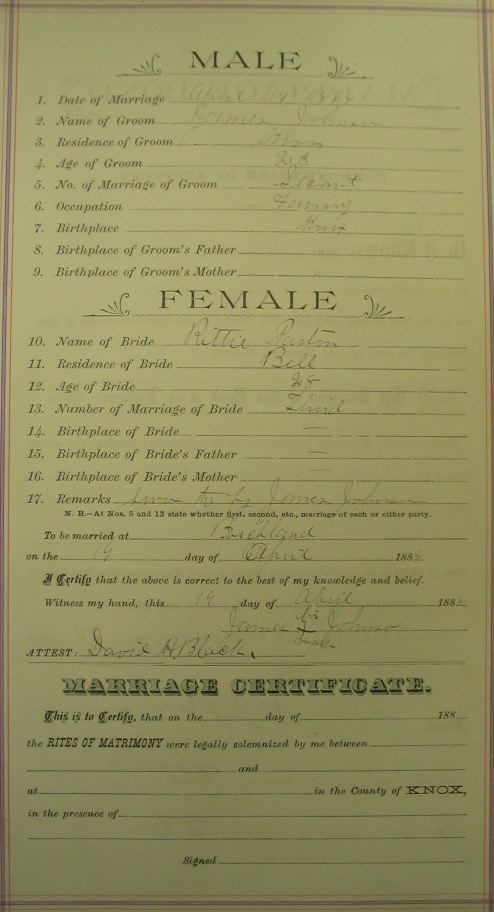 MALE
1. Date of Marriage April 19
2. Name of Groom James Johnson
3. Residence of Groom
4. Age of Groom 23
5. No. of Marriage of Groom
6. Occupation
7. Birthplace
8. Birthplace of Groom's Father
9. Birthplace of Groom's Mother
FEMALE
10. Name of Bride Rittie
11. Residence of Bride Bell
12. Age of Bride 28
13. Number of Marriage of Bride Third
14. Birthplace of Bride —
15. Birthplace of Bride's Father —
16. Birthplace of Bride's Mother —
17. Remarks by James Johnson
N. B.—At Nos. 5 and 13 state whether first, second, etc., marriage of each or either party.
To be married at Richland
on the 19 day of April 188
I Certify that the above is correct to the best of my knowledge and belief.
Witness my hand, this 19 day of April 188
his
James Johnson
mark
ATTEST: David H. Black.
MARRIAGE CERTIFICATE.
This is to Certify, that on the day of 188
the RITES OF MATRIMONY were legally solemnized by me between
and
at in the County of KNOX,
in the presence of
Signed